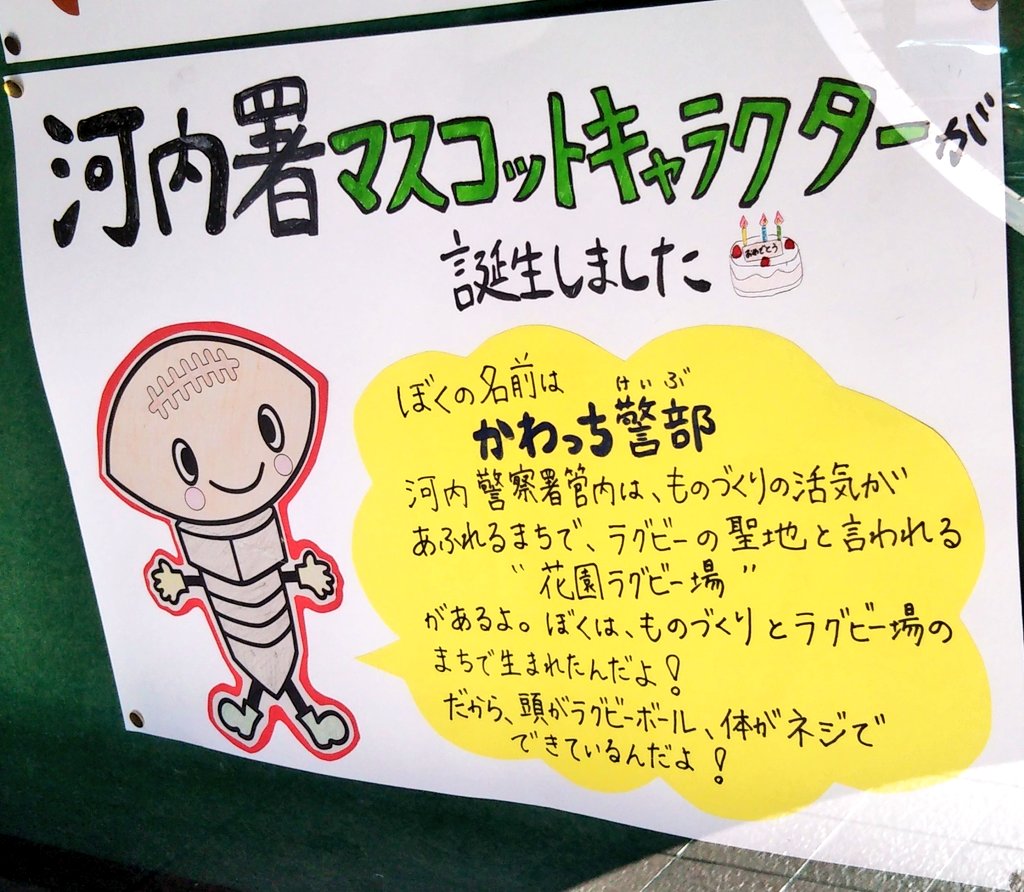 河内署マスコットキャラクターが
誕生しました
おめでとう
ぼくの名前は
けいぶ
かわっち警部
河内警察署管内は、ものづくりの活気が
あふれるまちで、ラグビーの聖地と言われる
"花園ラグビー場"
があるよ。ぼくは、ものづくりとラグビー場の
まちで生まれたんだよ!
だから、頭がラグビーボール、体がネジで
できているんだよ!